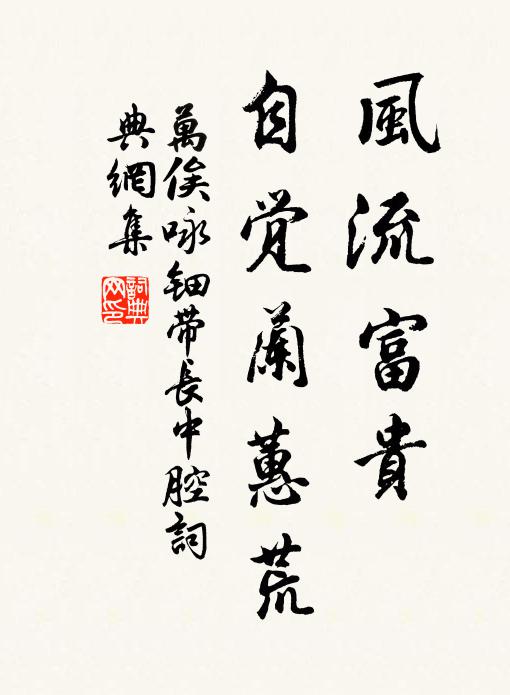 風流富貴
自觉蘭蕙荒
萬俟咏鈿带長中腔詞
典網集
詞典網印